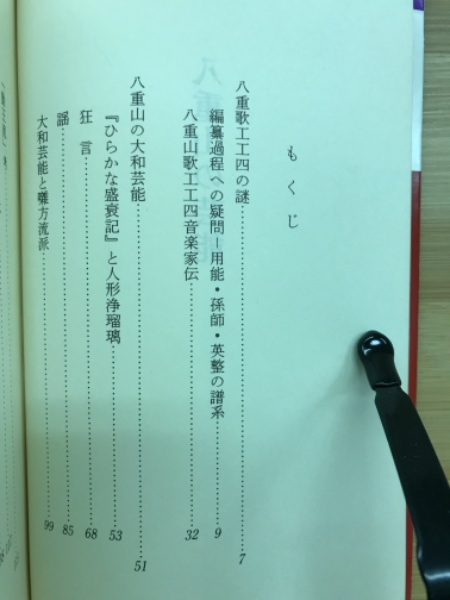 もくじ
八重歌工工四の謎 7
編纂過程への疑問－用能・孫師・英整の譜系 9
八重山歌工工四音楽家伝 32
八重山の大和芸能 51
『ひらかな盛衰記』と人形浄瑠璃 53
狂言 68
謡 85
大和芸能と囃方流派 99